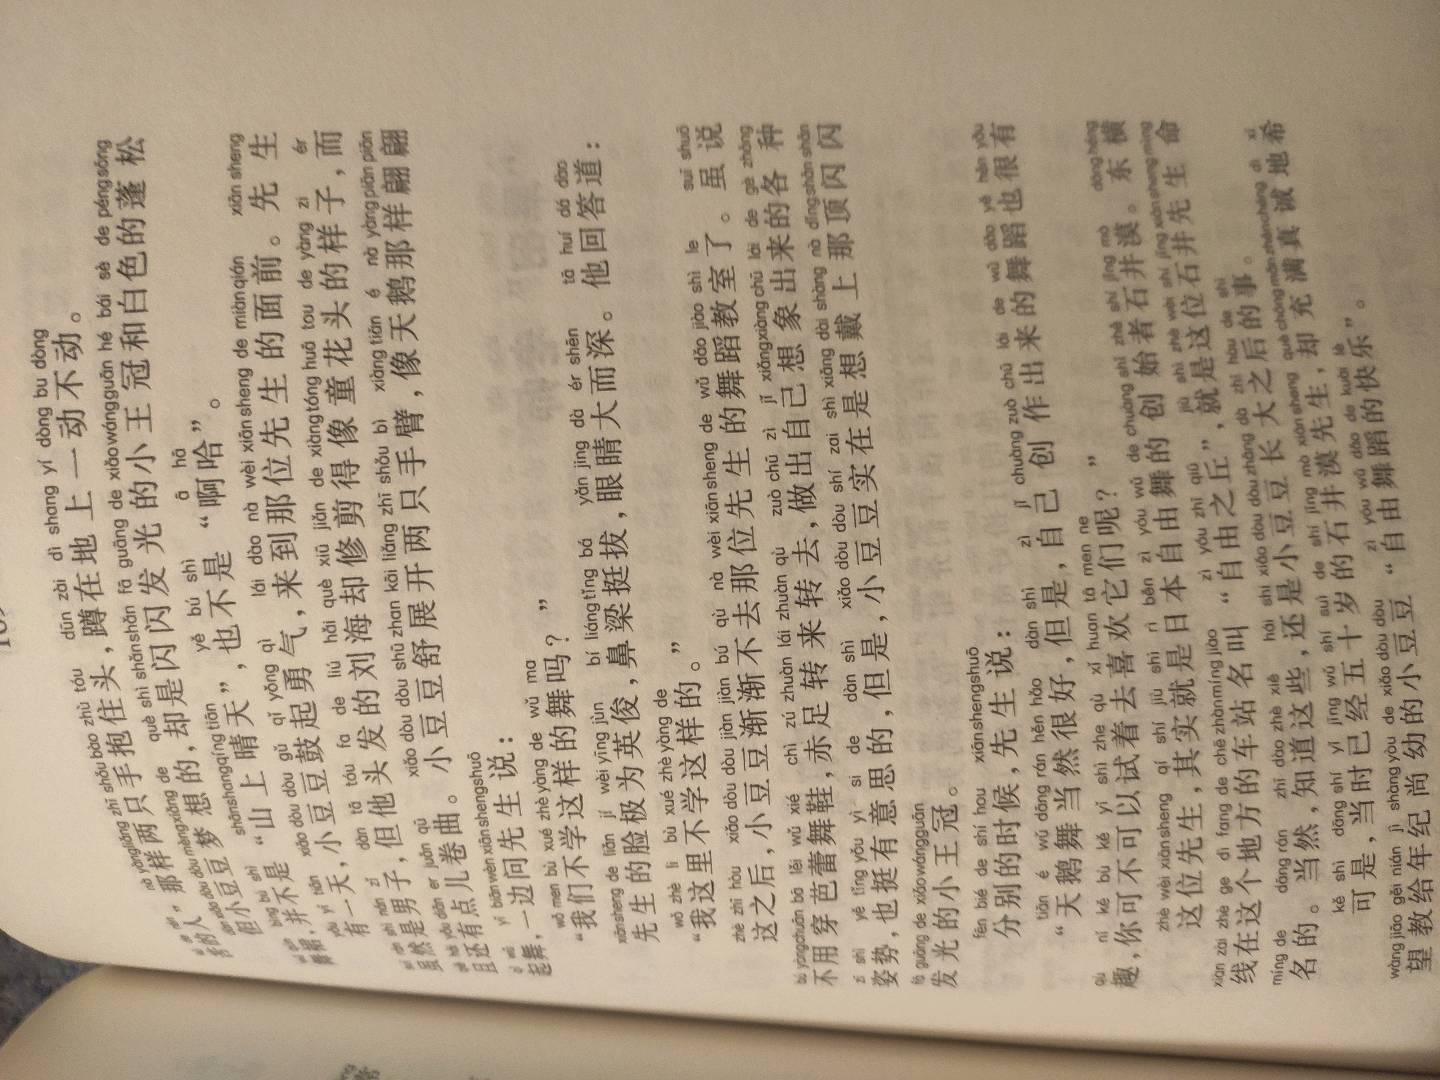 人，那样两只手抱住头，蹲在地上一动不动。
但小豆豆梦想的，却是闪闪发光的小王冠和白色的蓬松
舞裙，并不是“山上晴天”，也不是“啊哈”。
有一天，小豆豆鼓起勇气，来到那位先生的面前。先生
虽然是男子，但他头发的刘海却修剪得像童花头的样子，而
且还有点儿卷曲。小豆豆舒展开两只手臂，像天鹅那样翩翩
起舞，一边问先生说：
“我们不学这样的舞吗？”
先生的脸极为英俊，鼻梁挺拔，眼睛大而深。他回答道：
“我这里不学这样的。”
这之后，小豆豆渐渐不去那位先生的舞蹈教室了。虽说
不用穿芭蕾舞鞋，赤足转来转去，做出自己想象出来的各种
姿势，也挺有意思的，但是，小豆豆实在是想戴上那顶闪闪
发光的小王冠。
分别的时候，先生说：
“天鹅舞当然很好，但是，自己创作出来的舞蹈也很有
趣，你可不可以试着去喜欢它们呢？”
这位先生，其实就是日本自由舞的创始者石井漠。东横
线在这个地方的车站名叫“自由之丘”，就是这位石井先生命
名的。当然，知道这些，还是小豆豆长大之后的事。
可是，当时已经五十岁的石井漠先生，却充满真诚地希
望教给年纪尚幼的小豆豆“自由舞蹈的快乐”。